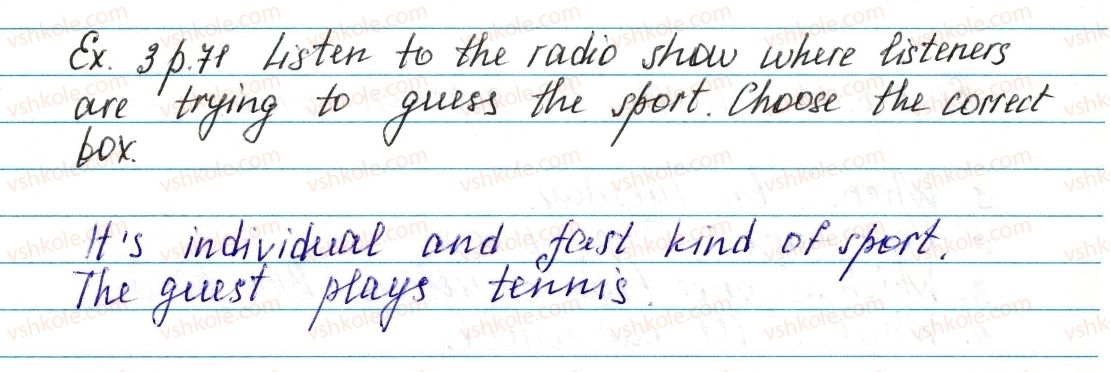 Ex. 3 p.71 Listen to the radio show where listeners
are trying to guess the sport. Choose the correct
box.
It's individual and fast kind of sport.
The guest plays tennis.